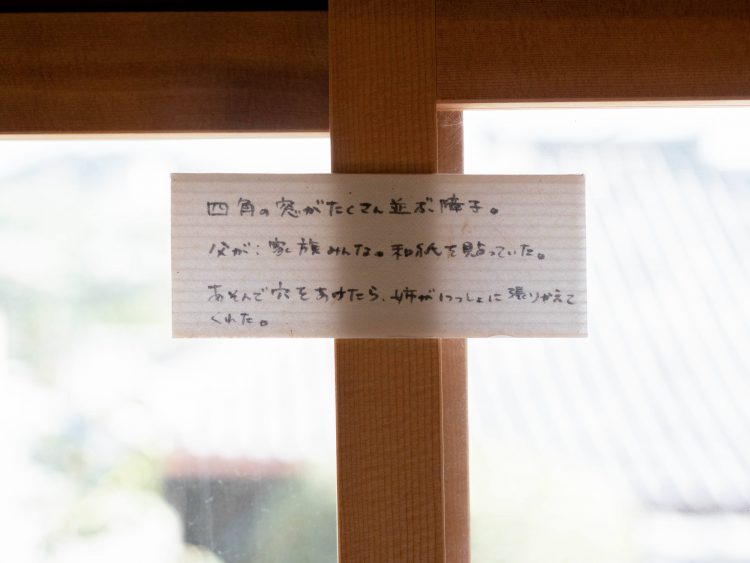 四角の窓がたくさん並ぶ障子。
父が: 家族みんな。和紙を貼っていた。
あそんで穴をあけたら、姉がいっしょに張りかえて
くれた。